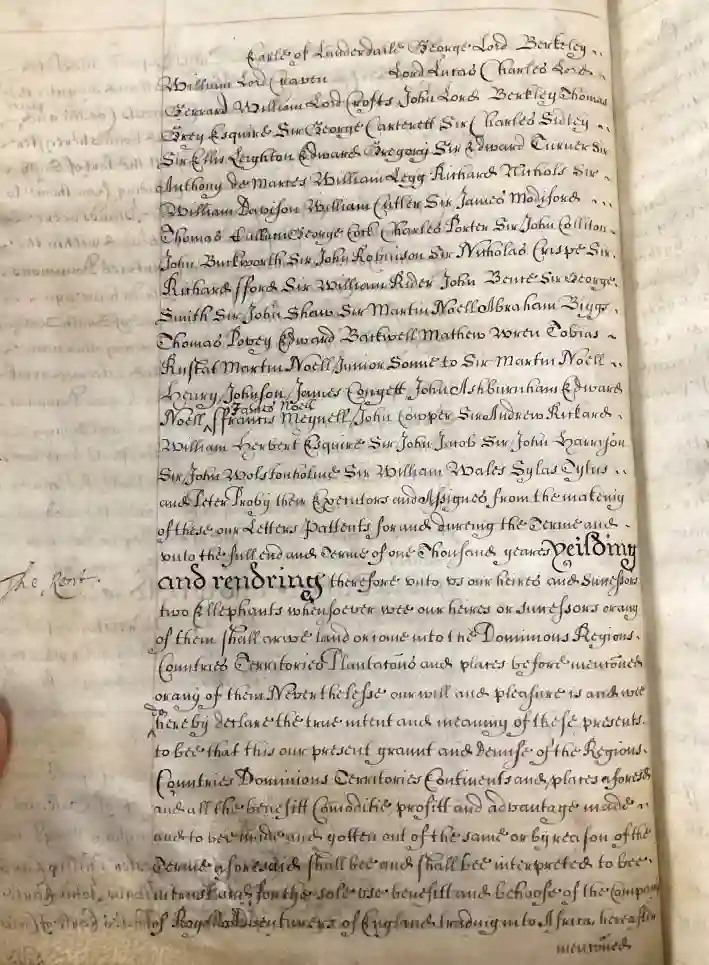 Earle of Lauderdaile George Lord Berkeley
William Lord Craven Lord Lucas Charles Lord
Gerrard William Lord Crofts John Lord Berkley Thomas
Grey Esquire Sir George Carterett Sir Charles Sidley
Sir Ellis Leighton Edward Gregory Sir Edward Turner Sir
Anthony de Marces William Legg Richard Nichols Sir
William Davison William Cutler Sir James Modiford
Thomas Cullam George Cock Charles Porter Sir John Colliton
John Buckworth Sir John Robinson Sir Nicholas Crispe Sir
Richard fford Sir William Rider John Bence Sir George
Smith Sir John Shaw Sir Martin Noell Abraham Biggs
Thomas Povey Edward Backwell Mathew Wren Tobias
Rustat Martin Noell Junior Sonne to Sir Martin Noell
Henry Johnson James Congett John Ashburnham Edward
James Noell
Noell ffrancis Meynell John Cowper Sir Andrew Rickard
William Herbert Esquire Sir John Jacob Sir John Harrison
Sir John Wolstonholme Sir William Wales Sylas Tytus
and Peter Proby their Executors and Assignes from the makeing
of these our Letters Pattents for and dureing the Terme and
unto the full end and Terme of one Thousand yeares Yeilding
The Rent.
and rendring therefore unto us our heires and Successors
two Ellephants whensoever wee our heires or Successors or any
of them shall arive land or come into the Dominions Regions
Countries Territories Plantatons and places before menconed
or any of them Neverthelesse our will and pleasure is and wee
do
hereby declare the true intent and meaning of these presents
to bee that this our present graunt and demise of the Regions
Countries Dominions Territories Continents and places aforesd
and all the benefitt Comoditie profitt and advantage made
and to bee made and gotten out of the same or by reason of the
Terme aforesaid shall bee and shall bee interpreted to bee
in trust and for the sole use benefitt and behoofe of the Company
of Royall Adventurers of England tradeing into Africa hereafter
menconed